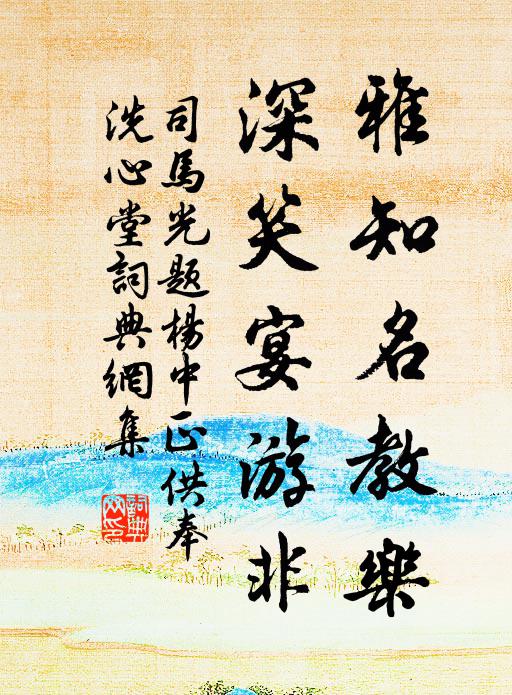 雅知名教樂
深笑宴游非
司馬光題楊中正供奉
洗心堂詞典網集